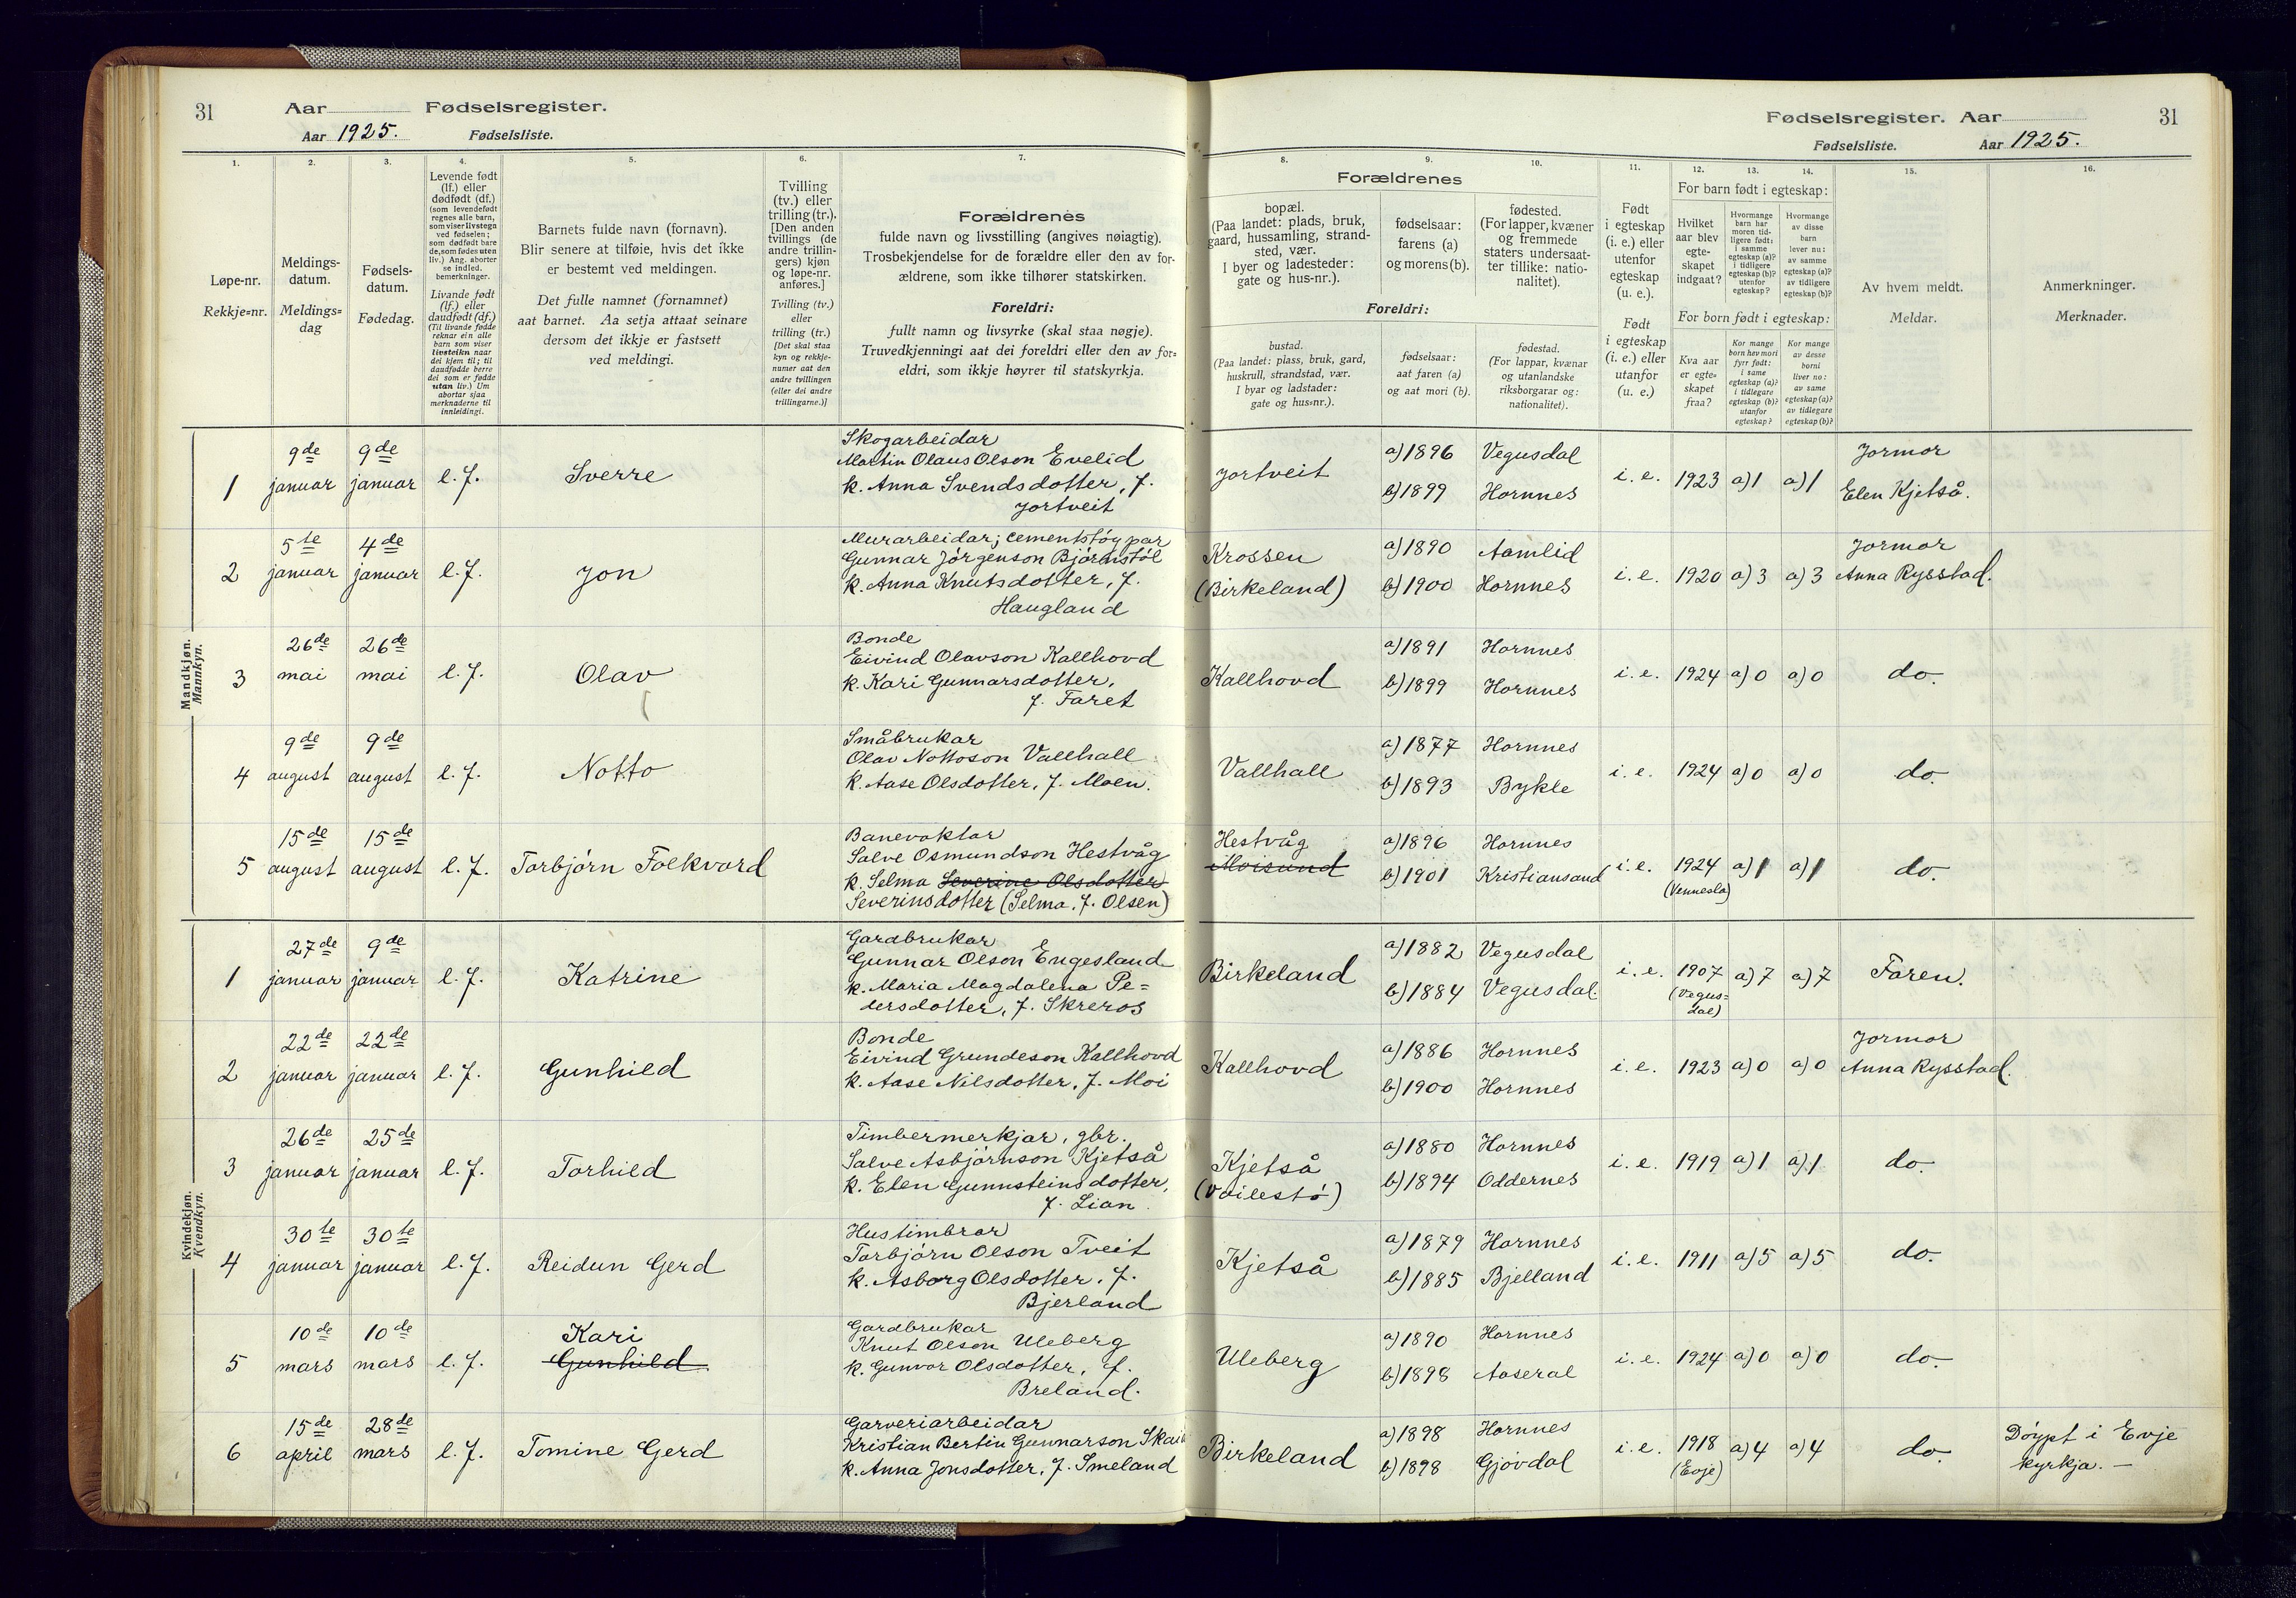 31
Aar
Fødselsregister.
Aar 1925.
Fødselsliste.
1.
2.
3.
4.
5.
6.
7.
Løpe-nr.
Rekkje=nr.
Meldings-
datum.
Meldings=
dag
Fødsels-
datum.
Fødedag.
Levende født
(lf.) eller
dødfødt (df.)
(som levendefødt
regnes alle barn,
som viser livstegn
ved fødselen;
som dødfødt bare
de, som fødes uten
liv.) Ang. aborter
se indled.
bemerkninger.
Livande født
(lf.) eller
daudfødt (df.)
(Til livande fødde
reknar ein alle
barn som viser
livsteikn naar
dei kjem til; til
daudfødde berre
dei som er fødde
utan liv.) Um
abortar sjaa
merknaderne til
innleidingi.
Barnets fulde navn (fornavn).
Blir senere at tilføie, hvis det ikke
er bestemt ved meldingen.
Det fulle namnet (fornamnet)
aat barnet. Aa setja attaat seinare
dersom det ikkje er fastsett
ved meldingi.
Tvilling
(tv.) eller
trilling (tr.).
[Den anden
tvillings (de
andre trillin-
gers) kjøn
og løpe-nr.
anføres.]
Tvilling (tv.)
eller
trilling (tr.)
[Det skal staa
kyn og rekkje-
numer aat den
andre tvillingen
(eller dei andre
trillingarne.)]
Forældrenes
fulde navn og livsstilling (angives nøiagtig).
Trosbekjendelse for de forældre eller den av for-
ældrene, som ikke tilhører statskirken.
Foreldri:
fullt namn og livsyrke (skal staa nøgje).
Truvedkjenningi aat dei foreldri eller den av for=
eldri, som ikkje høyrer til statskyrkja.
Mandkjøn.
Mannkyn.
1
9de januar
9de januar
l. f.
Sverre
Skogarbeidar
Martin Olaus Olson Evelid
k. Anna Svendsdotter, f.
Jortveit
2
5te januar
4de januar
l. f.
Jon
Murarbeidar; cementstøypar
Gunnar Jørgenson Bjørnstøl
k. Anna Knutsdotter, f.
Haugland
3
26de mai
26de mai
l. f.
Olav
Bonde
Eivind Olavson Kallhovd
k. Kari Gunnarsdotter,
f. Faret
4
9de august
9de august
l. f.
Notto
Småbrukar
Olav Nottoson Vallhall
k. Aase Olsdotter, f. Moen.
5
15de august
15de august
l. f.
Torbjørn Folkvard
Banevaktar
Salve Osmundson Hestvåg
k. Selma Severine Olsdotter
Severinsdotter (Selma, f. Olsen)
Kvindekjøn.
Kvendkyn.
1
27de januar
9de januar
l. f.
Katrine
Gardbrukar
Gunnar Olson Engesland
k. Maria Magdalena Pe=
dersdotter, f. Skreros
2
22de januar
22de januar
l. f.
Gunhild
Bonde
Eivind Grundeson Kallhovd
k. Aase Nilsdotter, f. Moi
3
26de januar
25de januar
l. f.
Torhild
Timbermerkjar, gbr.
Salve Asbjørnson Kjetså
k. Elen Gunnsteinsdotter,
f. Lian
4
30te januar
30te januar
l. f.
Reidun Gerd
Hustimbrar
Torbjørn Olson Tveit
k. Asborg Olsdotter, f.
Bjerland
5
10de mars
10de mars
l. f.
Kari
Gunhild
Gardbrukar
Knut Olson Uleberg
k. Gunvor Olsdotter, f.
Breland.
6
15de april
28de mars
l. f.
Tomine Gerd
Garveriarbeidar
Kristian Bertin Gunnarson
k. Anna Jonsdotter, f. Smeland
Fødselsregister. Aar
31
Fødselsliste.
Aar 1925.
8.
9.
10.
11.
12.
13.
14.
15.
16.
Forældrenes
bopæl.
(Paa landet: plads, bruk,
gaard, hussamling, strand-
sted, vær.
I byer og ladesteder:
gate og hus-nr.).
fødselsaar:
farens (a)
og morens (b).
fødested.
(For lapper, kvæner
og fremmede
staters undersaat-
ter tillike: natio-
nalitet).
Foreldri:
bustad.
(Paa landet: plass, bruk, gard,
huskrull, strandstad, vær.
I byar og ladstader:
gate og hus=nr.).
fødselsaar:
aat faren (a)
og aat mori (b).
fødestad.
(For lappar, kvænar
og utanlandske
riksborgarar og:
nationalitet).
Født
i egteskap
(i. e.) eller
utenfor
egteskap
(u. e.).
Født
i egteskap
(i. e.) eller
utanfor
(u. e.)
For barn født i egteskap:
Hvilket
aar blev
egte-
skapet
indgaat?
Hvormange
barn har
moren tid-
ligere født:
i samme
egteskap (a)?
i tidligere
egteskap (b)?
utenfor
egteskap?
Hvormange
av disse
barn
lever nu:
av samme
egteskap (a)?
av tidligere
egteskap (b)?
For born født i egteskap:
Kva aar
er egte=
skapet
fraa?
Kor mange
born hev mori
fyrr født:
i same
egteskap (a)?
i tidlegare
egteskap (b)?
utanfor
egteskap?
Kor mange
av desse
borni
liver no:
av same
egteskap (a)?
av tidlegare
egteskap (b)?
Av hvem meldt.
Meldar.
Anmerkninger.
Merknader.
Jortveit
a) 1896 Vegusdal
b) 1899 Hornnes
i. e. 1923 a) 1 a) 1
Jormor
Elen Kjetså.
Krossen
(Birkeland)
a) 1890 Aamlid
b) 1900 Hornnes
i. e. 1920 a) 3 a) 3
Jormor
Anna Rysstad.
Kallhovd
a) 1891 Hornnes
b) 1899 Hornnes
i. e. 1924 a) 0 a) 0
do.
Vallhall
a) 1877 Hornnes
b) 1893 Bykle
i. e. 1924 a) 0 a) 0
do.
Hestvåg
Moisund
a) 1896 Hornnes
b) 1901 Kristiansand
i. e. 1924 a) 1 a) 1
(Vennesla)
do.
Birkeland
a) 1882 Vegusdal
b) 1884 Vegusdal
i. e. 1907 a) 7 a) 7
(Vegus=
dal)
Faren.
Kallhovd
a) 1886 Hornnes
b) 1900 Hornnes
i. e. 1923 a) 0 a) 0
Jormor
Anna Rysstad.
Kjetså
(Voilestø)
a) 1880 Hornnes
b) 1894 Oddernes
i. e. 1919 a) 1 a) 1
do.
Kjetså
a) 1879 Hornnes
b) 1885 Bjelland
i. e. 1911 a) 5 a) 5
do.
Uleberg
a) 1890 Hornnes
b) 1898 Aaseral
i. e. 1924 a) 0 a) 0
do.
Birkeland
a) 1898 Hornnes
b) 1898 Gjøvdal
i. e. 1918 a) 4 a) 4
(Evje)
do.
Døypt i Evje
kyrkja. —